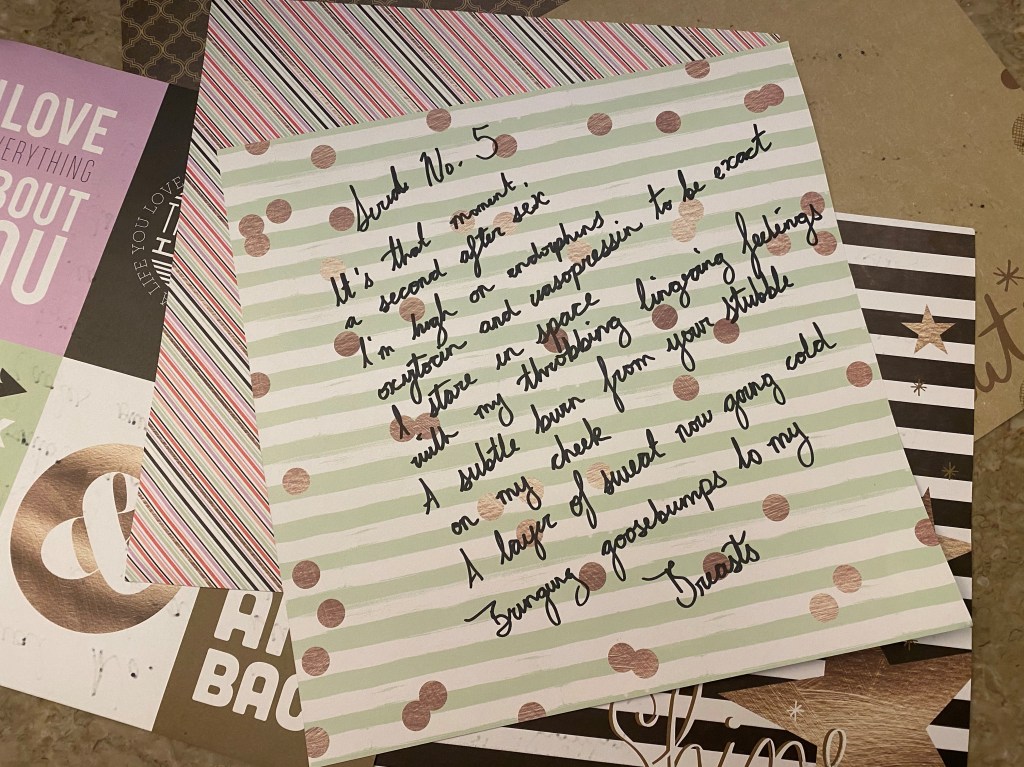 I LOVE
EVERYTHING
ABOUT
YOU
A LIFE YOU LOVE
No. 5
It's that moment,
a second after sex
I'm high on endorphins
oxytocin and vasopressin to be exact
I stare in space
with my throbbing lingering feelings
A subtle burn from your stubble
on my cheek
A layer of sweat now going cold
Bringing goosebumps to my
Breasts
&
BAC
Shine